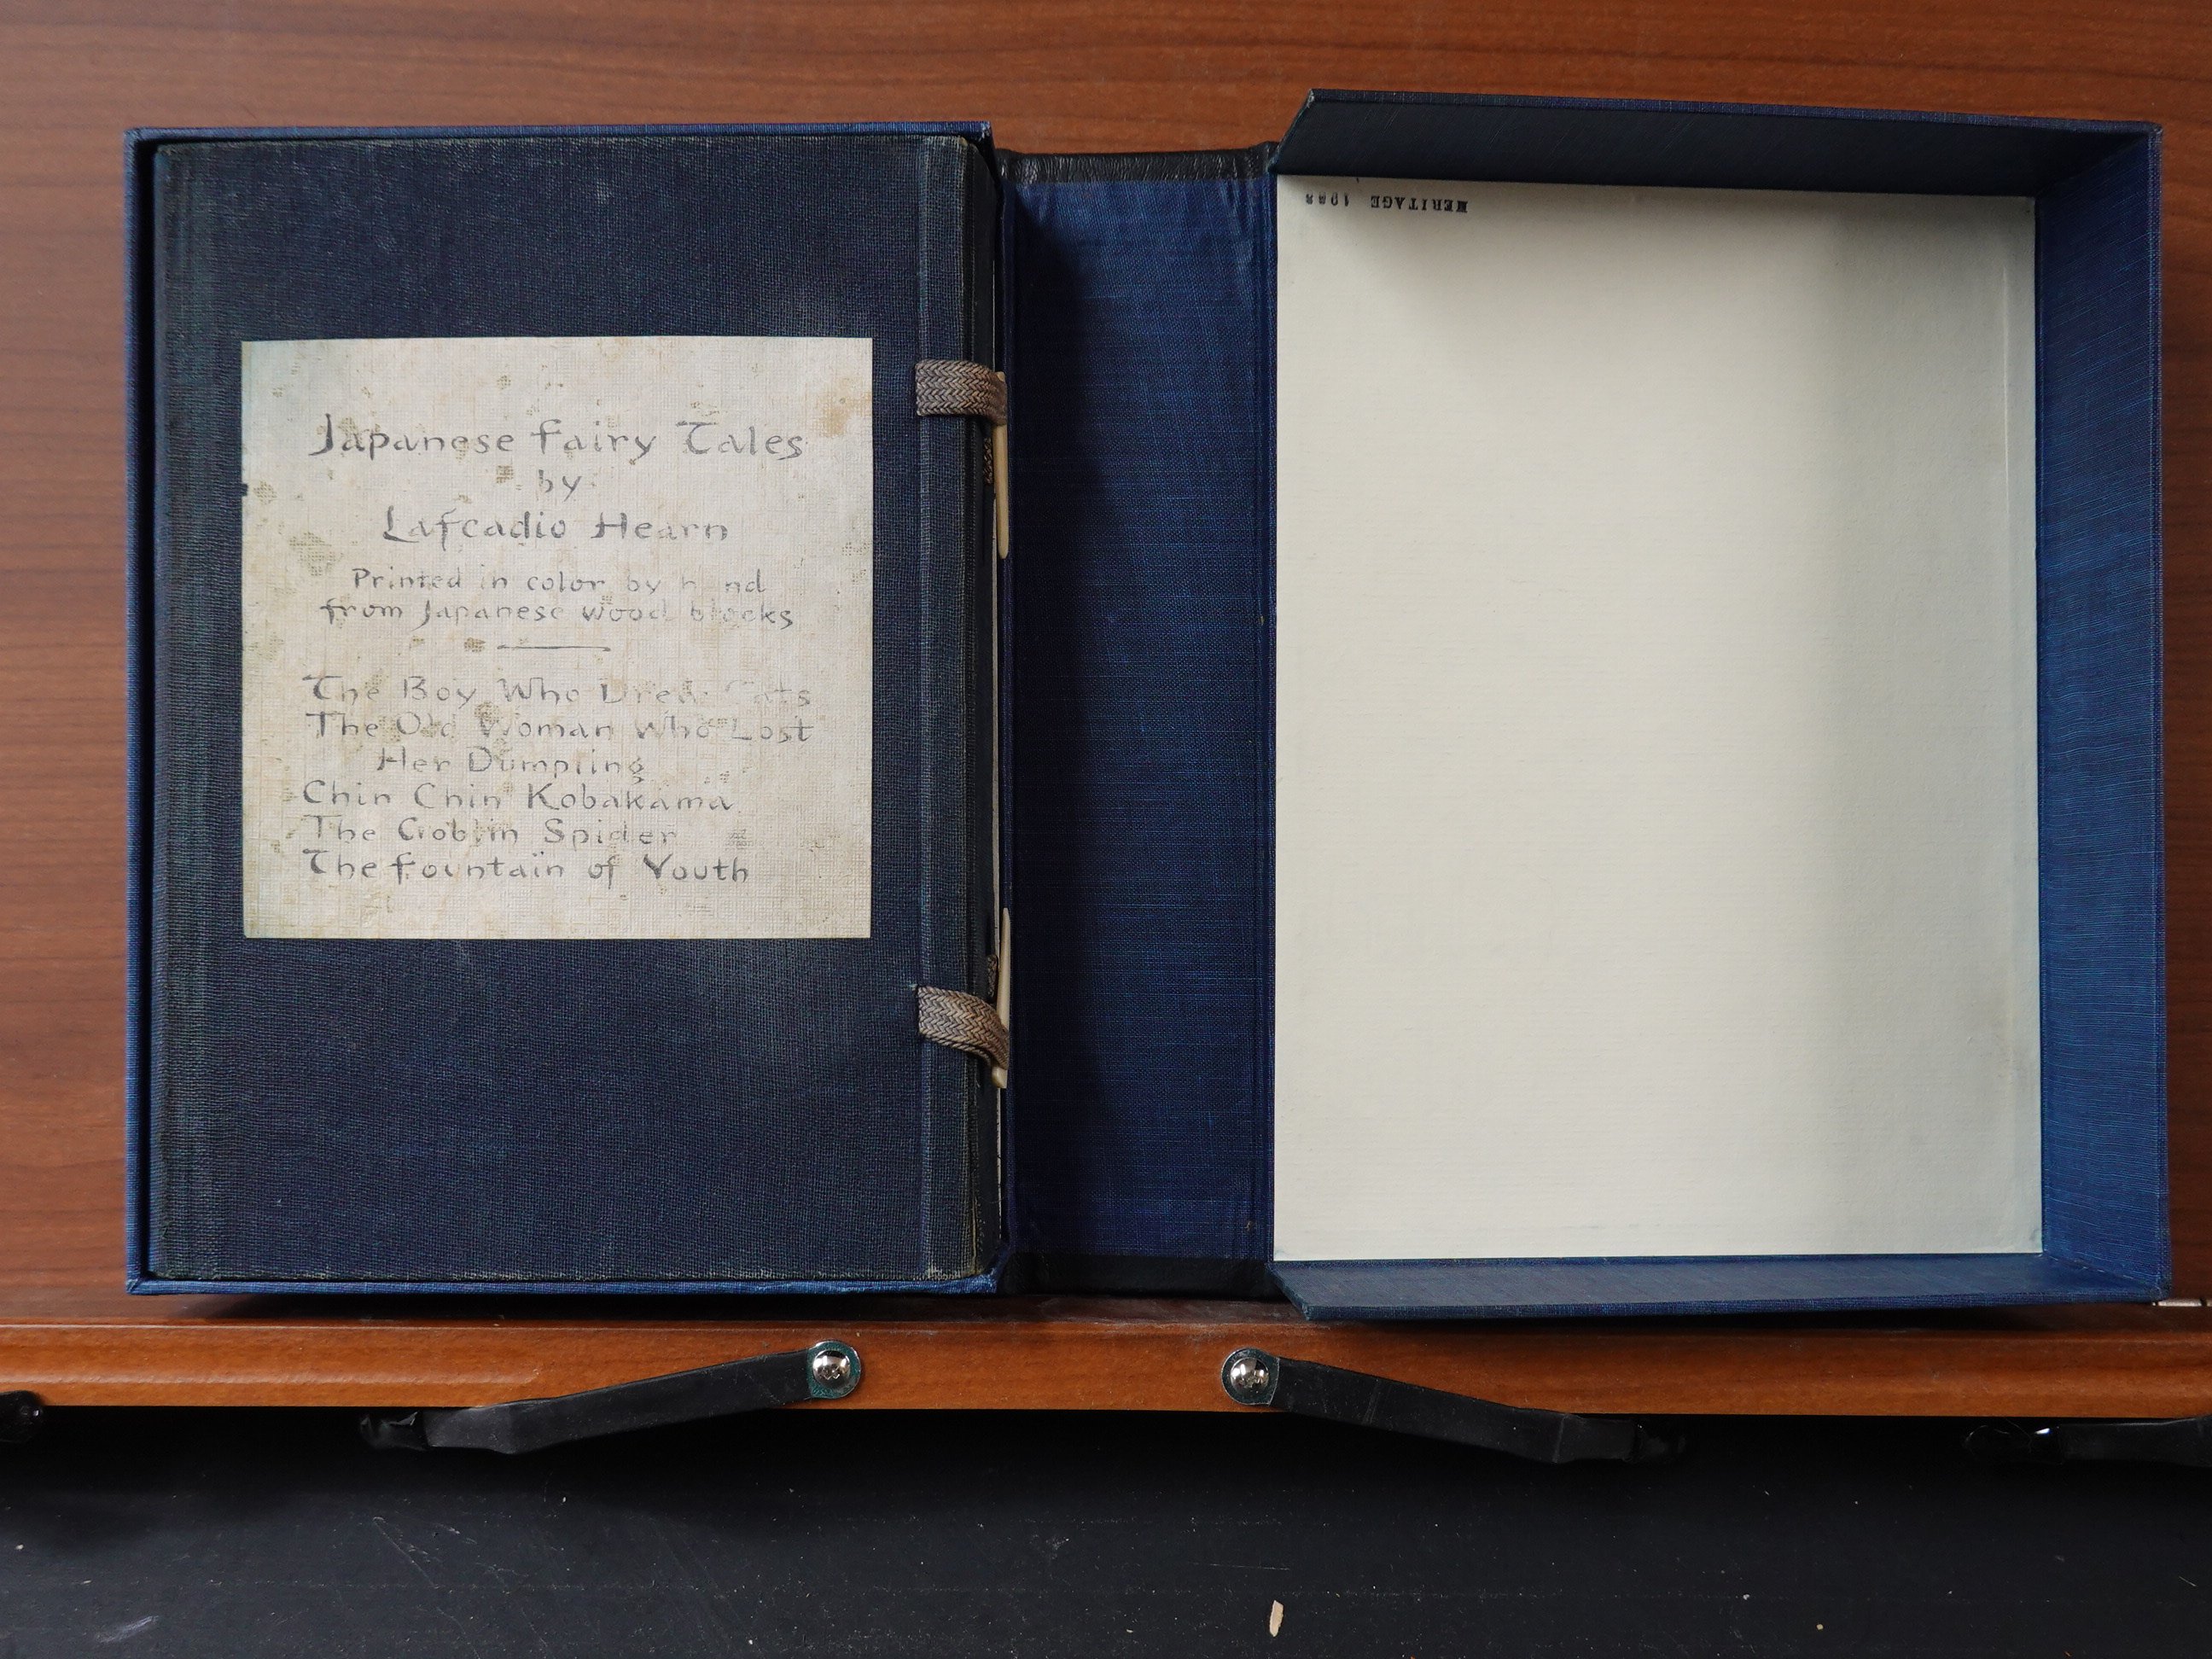 Japanese Fairy Tales
by
Lafcadio Hearn
Printed in color by hand
from Japanese wood blocks
The Boy Who Drew Cats
The Old Woman Who Lost
Her Dumpling
Chin Chin Kobakama
The Goblin Spider
The Fountain of Youth
HERITAGE